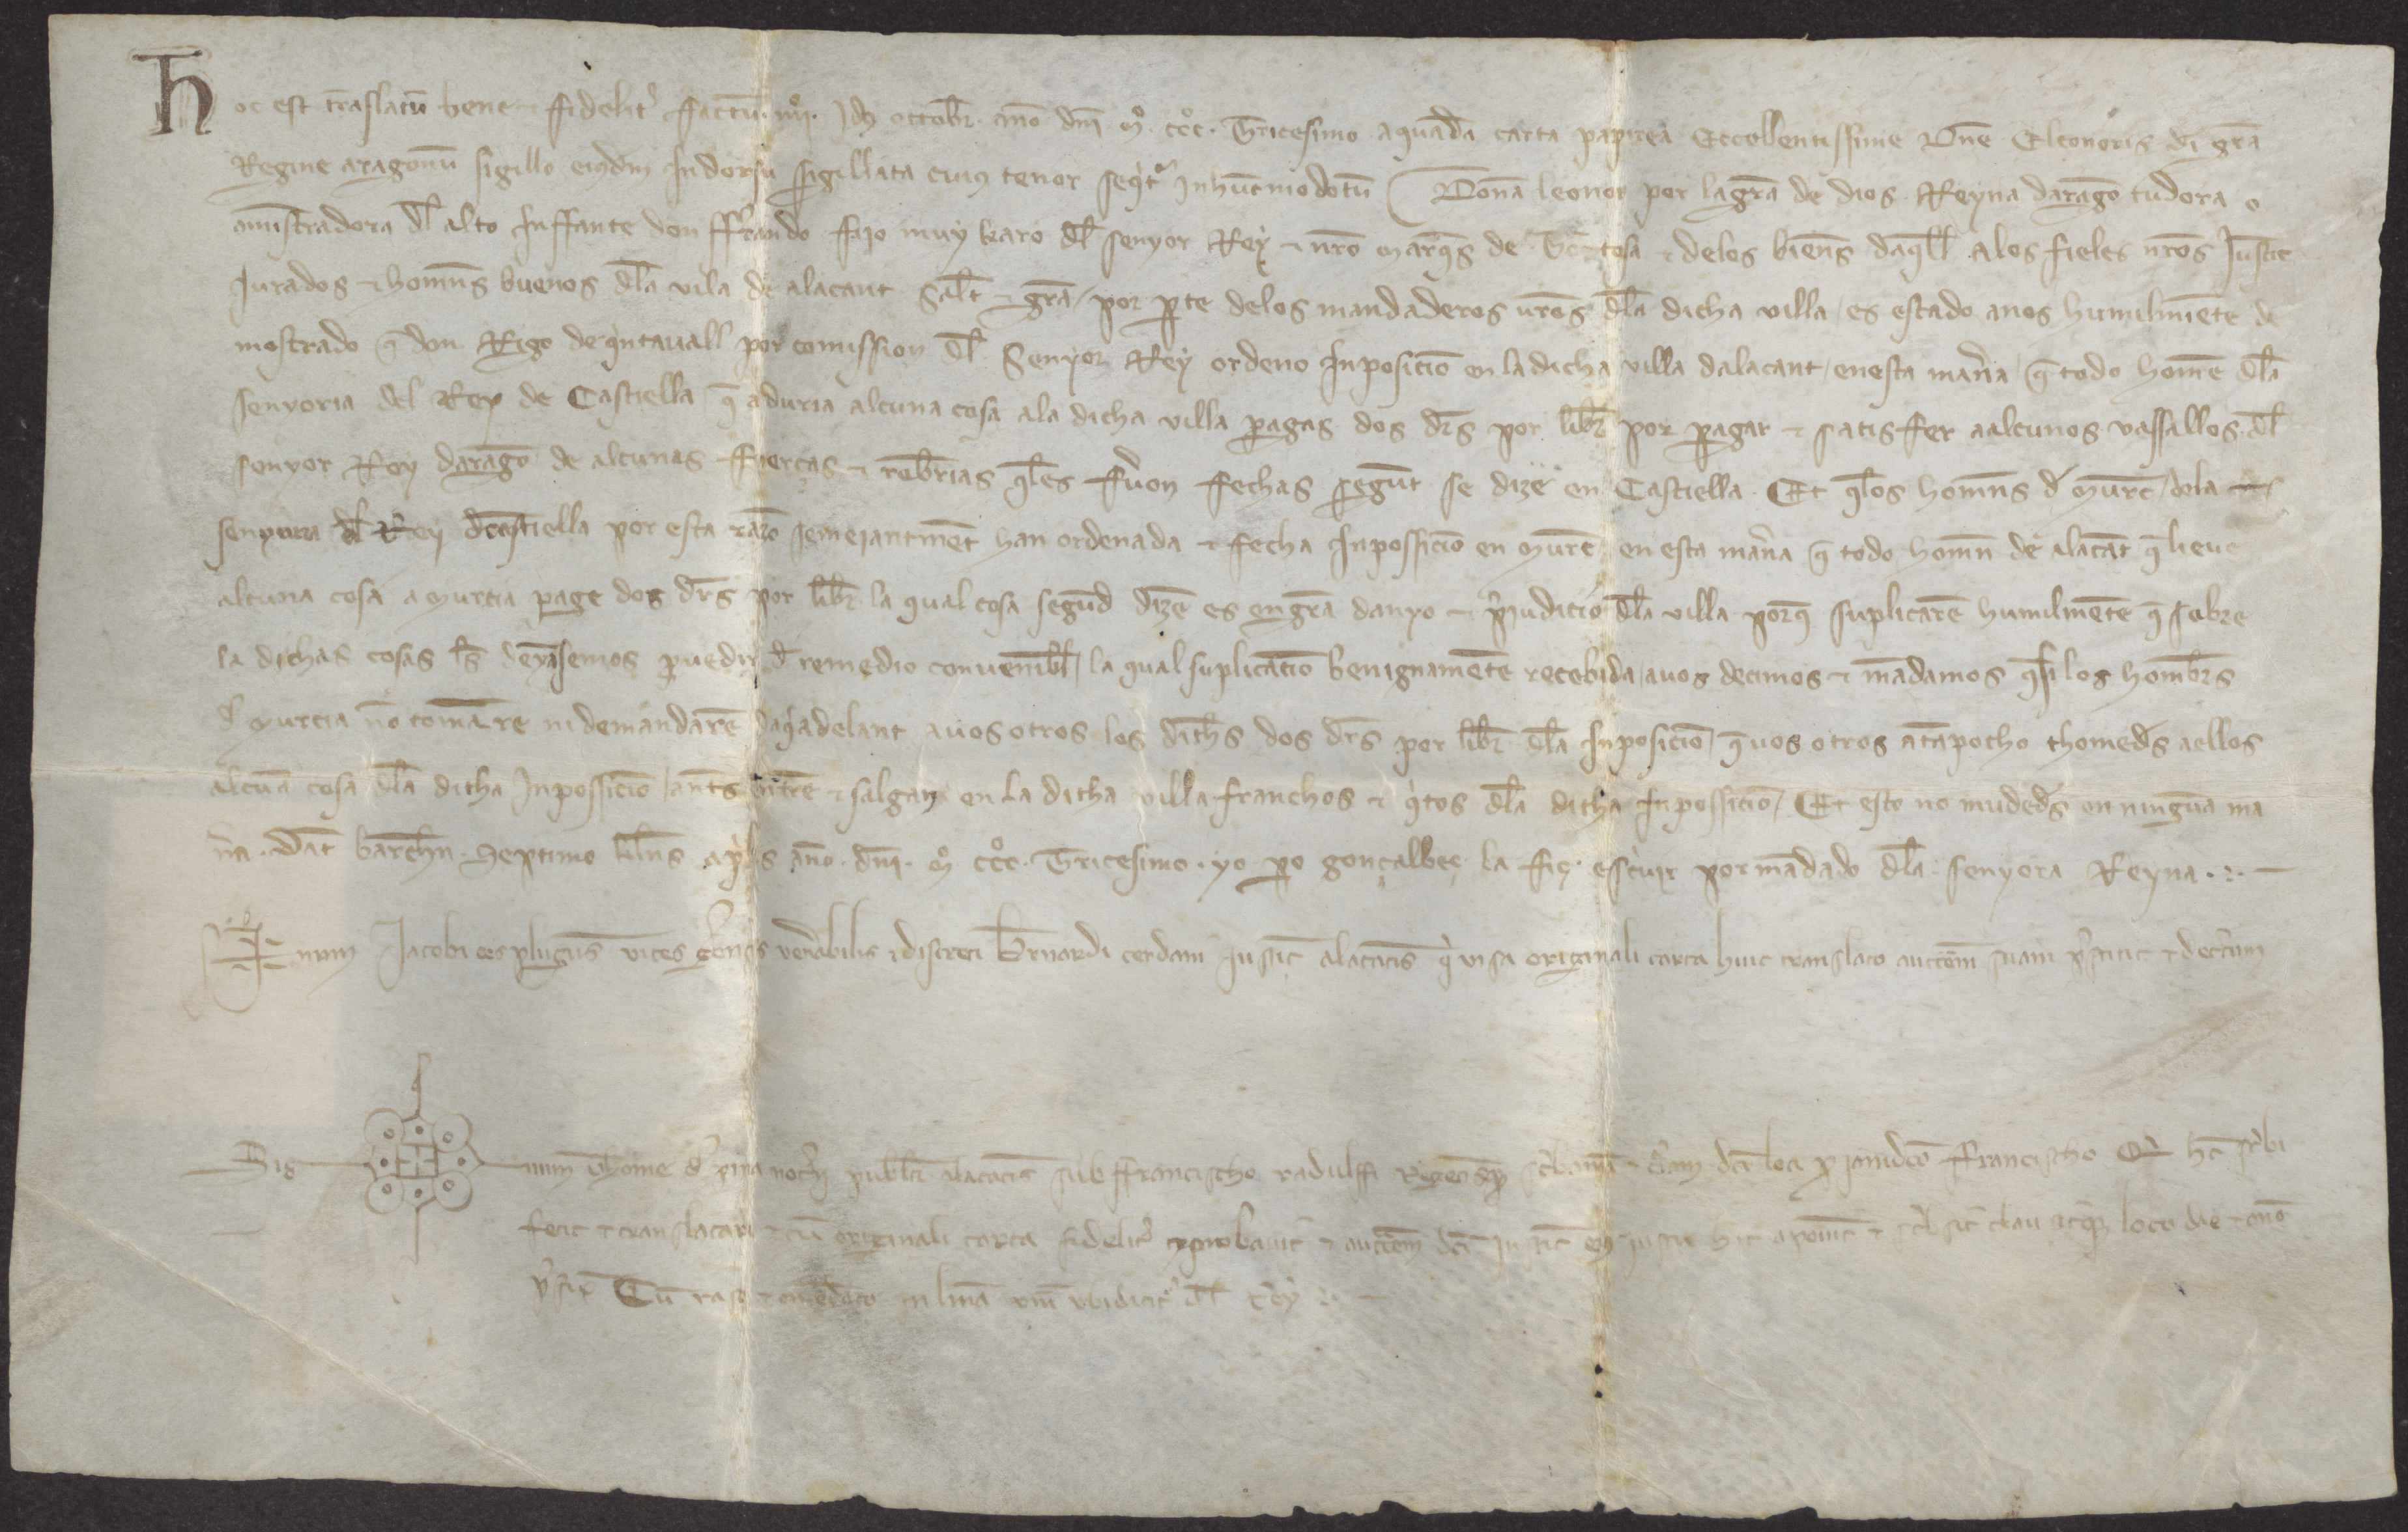 Hoc est trāslatū bene ⁊ fideliť ffactū · iiiiº · Idꝯ octobr̄ · anno dn̄i Mº · cccº · Tricesimo a quadā carta papirea Excellentissime Dn̄e Elconoris di gr̄a
Regine aragonū sigillo eiusdm̄ In dorsu sigillata cuiꝯ tenor seqitͬ In hūc modū Dona leonor por la gr̄a de dios Reyna daragō tudora o
am̄stradora dl̄ alto Inffante don fferando fijo muy karo dl̄ senyor Rey ⁊ nr̄o marq̄s de Tortosa ⁊ delos biens daq̄ll Alos fieles nr̄os Iustic̄
Iurados ⁊ homn̄s buenos dl̄a vila de alacant Sal̄t ⁊ gr̄a / por ꝑte delos mandaderos ur̄os dl̄a dicha villa / es estado anos humilmēte de
mostrado q̄ don Rigo de q̇ntauall por comission dl̄ Senyor Rey ordeno Inposiciō en la dicha villa dalacant / en esta man̄a / q̄ todo home dl̄a
senyoria del Rey de Castiella q̄ aduria alcuna cosa ala dicha villa pagas dos drs̄ por libr̄ por pagar ⁊ satisffer aalcunos vassallos dl̄
senyor Rey daragō de alcunas fuerças ⁊ robr̄ias q̄les fuōn fechas segūt se dize en Castiella Et q̄los homn̄s d̄ Murc̄ / dla
senyoria dl̄ Rey dcastiella por esta razō semeiantmēt han ordenada ⁊ fecha Inpossiciō en Murc̄ en esta man̄a q̄ todo homn̄ de alacāt q̄ lieue
alcuna cosa a Murcia page dos drs̄ por libr̄ la qual cosa segūd dizē es en grā danyo ⁊ p̄iudicio dl̄a villa porq̄ suplicarē humilmēte q̄ sobre
la dichas cosas ls̄ deyāsemos puedir d̄ remedio conuenibl̄ / la qual suplicatiō benignamēte recebida / auos decimos ⁊ mādamos q̄ si los hombr̄s
d̄ Murcia nō tomarē ni demandarē daq̇adelant auosotros los dichs̄ dos drs̄ por libr̄ dl̄a Inposiciō / q̄ uos otros atāpocho thomedꝭ aellos
alcūa cosa dl̄a ditha Inpossiciō / ants̄ entrē ⁊ salgan en la ditha villa franchos ⁊ q̇tos dl̄a ditha Inpossiciō / Et esto no mudedꝭ en ningūa ma
n̄a · Dat̄ barchn̄ · Septimo kln̄s aplis ano · dn̄i · Mº cccº · Tricesimo · yo po gonçalbeç la fiç escriuir por mādado dl̄a senyora Reyna · : · —
Signum Iacobi ces plugus̄ vices gerēs ven̄abilis ⁊ discreti Bernardi cerdani Iustic̄ alacātꝭ q̇ visa originali carta huic translato auctōm suam p̄stitit ⁊ decr̄tum
Sig num Thome d̄ pina notr̄ij publici alacātis sub ffrancischo radulffi dc̄i loci francischo Qi hc̄ sc̄bi
fecit ⁊ translatari ⁊ cū originali carta fideliť ⁊ auctem̄ dc̄i Iustic̄ hic apposuit ⁊ clau loco die ⁊ ano
p̄fix̄ Cū raso ⁊ emēdato in linea viii ubi dicit̄ dl̄ Rey : · —